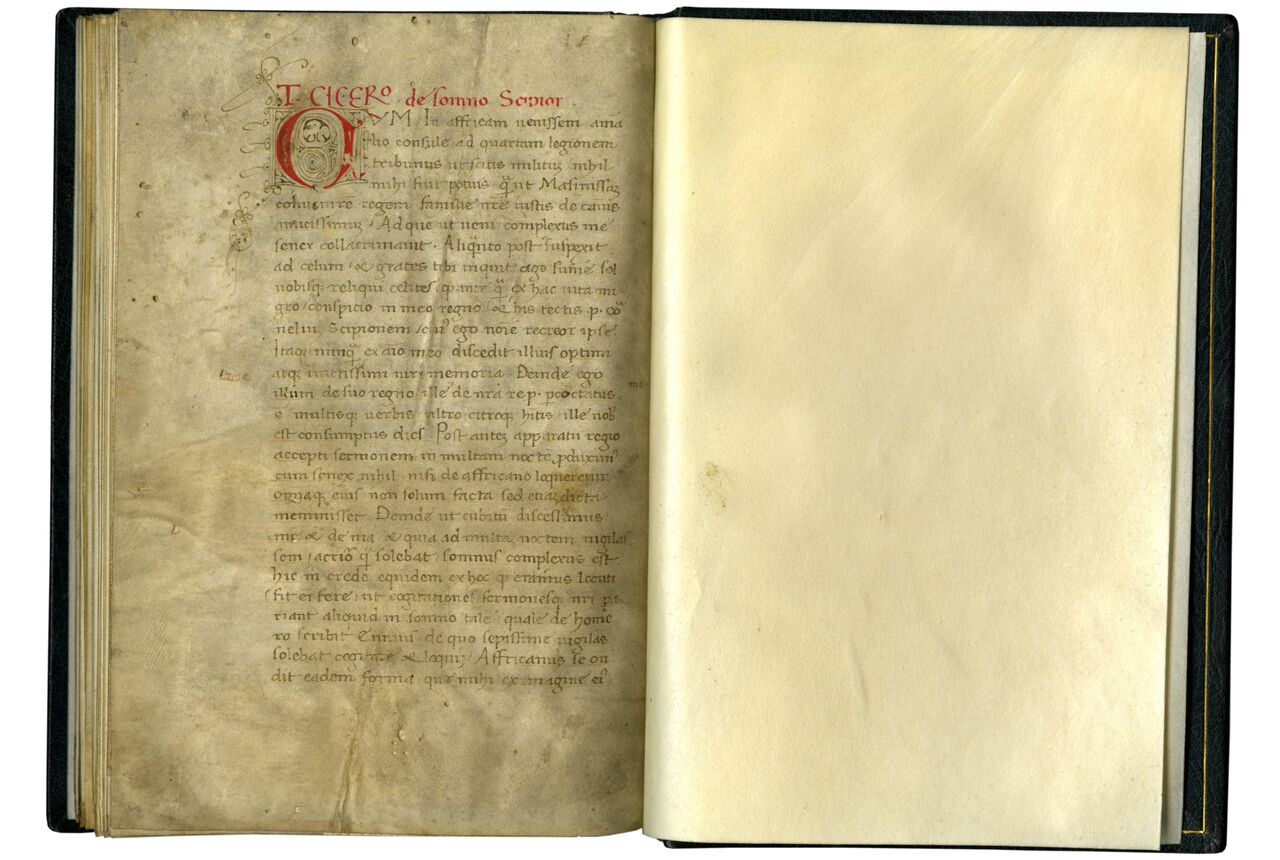 T. CICERO de somno Scipior
CVM In affricam uenissem ama
lio consule ad quartam legionem
tribunus ut scitis militū nihil
mihi fuit potius q̄ ut Masinissaz
conuenire regem familie nr̄e iustis de causis
amicissimuz. Ad quē ut ueni complexus me
senex collacrimauit. Aliq̄nto post suspexit
ad celum / & grates tibi inquit ago sūme sol
uobisq; reliqui celites / q ante q̄ ex hac uita mi
gro / conspicio in meo regno & his tectis .p. cō
nelium Scipionem / cuiꝰ ego nōīe recreor ipse
Itaq; nunq̄ ex aīo meo discedit illius optimi
atq; inuictissimi uiri memoria. Deinde ego
illum de suo regno / ille de nr̄a re p. pcōctatus
multisq; uerbis ultro citroq; hītis ille nob
est consumptus dies. Post autez apparatu regio
accepti sermonem in multam noctē pduximꝰ
cum senex nihil nisi de affricano loqueretur
omnaq; eius non solum facta sed etiaz dicta
meminisset. Deinde ut cubitu discessimus
me & de uia & quia ad multaz noctem uigilas
sem / actioꝛ q̄ solebat / somnus complexus est
hic m credo equidem ex hoc q eramus locuti
fit eī fere / ut cogitationes sermonesq; nr̄i pa
riant aliquid in somno tale quale de home
ro scribit Ennius de quo sepissime uigilas
solebat cogitare & loqui / Affricanus se on
dit eadem forma que mihi ex imagine eiꝰ